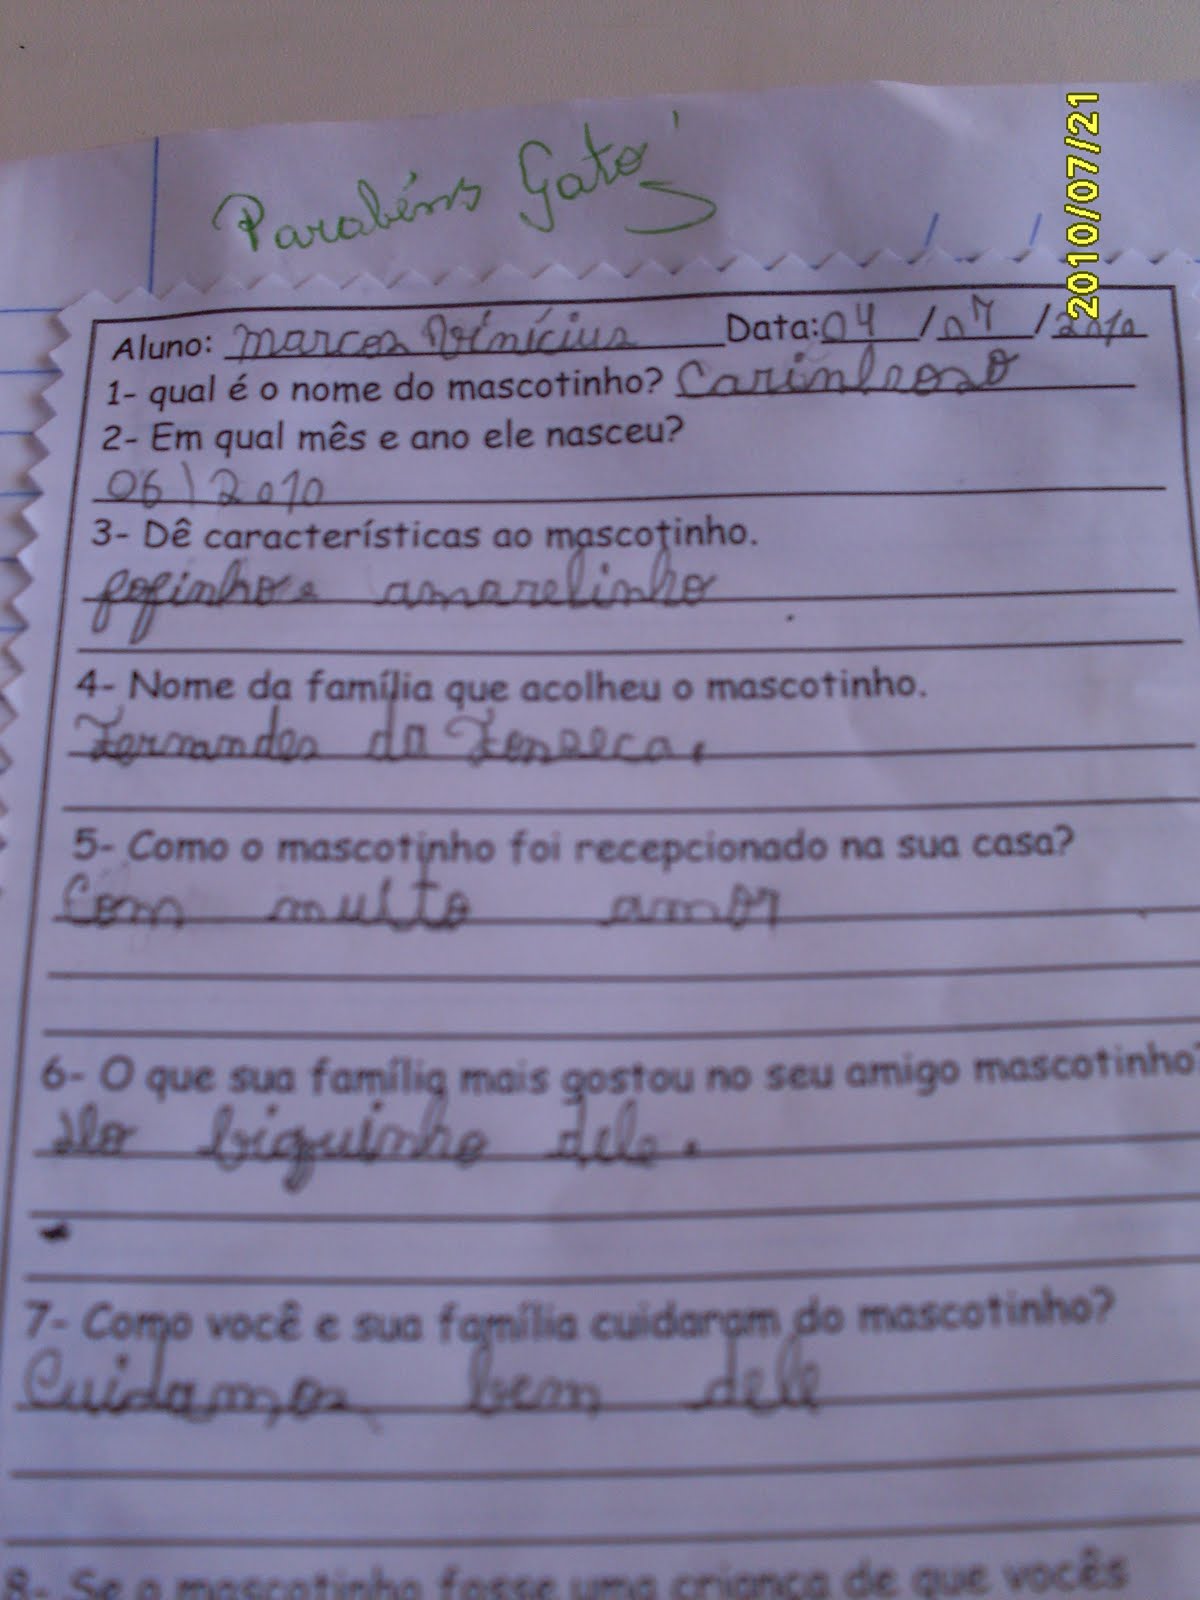 Parabéns Gato!
2010/07/21
Aluno: Marcos Vinícius Data: 04/07/2010
1- qual é o nome do mascotinho? Carinhoso
2- Em qual mês e ano ele nasceu?
06\2010
3- Dê características ao mascotinho.
fofinho e amarelinho
4- Nome da família que acolheu o mascotinho.
Fernandes da Fonseca.
5- Como o mascotinho foi recepcionado na sua casa?
Com muito amor
6- O que sua família mais gostou no seu amigo mascotinho?
Do biquinho dele.
7- Como você e sua família cuidaram do mascotinho?
Cuidamos bem dele
8- Se o mascotinho fosse uma criança de que vocês